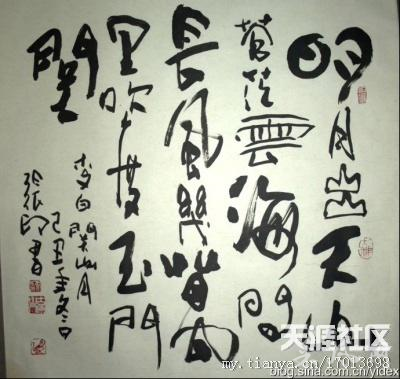 明月出天山
蒼茫雲海間
長風幾萬
里吹度玉門
關
李白關山月
己丑年冬日
張印書
天涯社区
my.tianya.cn/17013698
blog.sina.com.cn/yidex